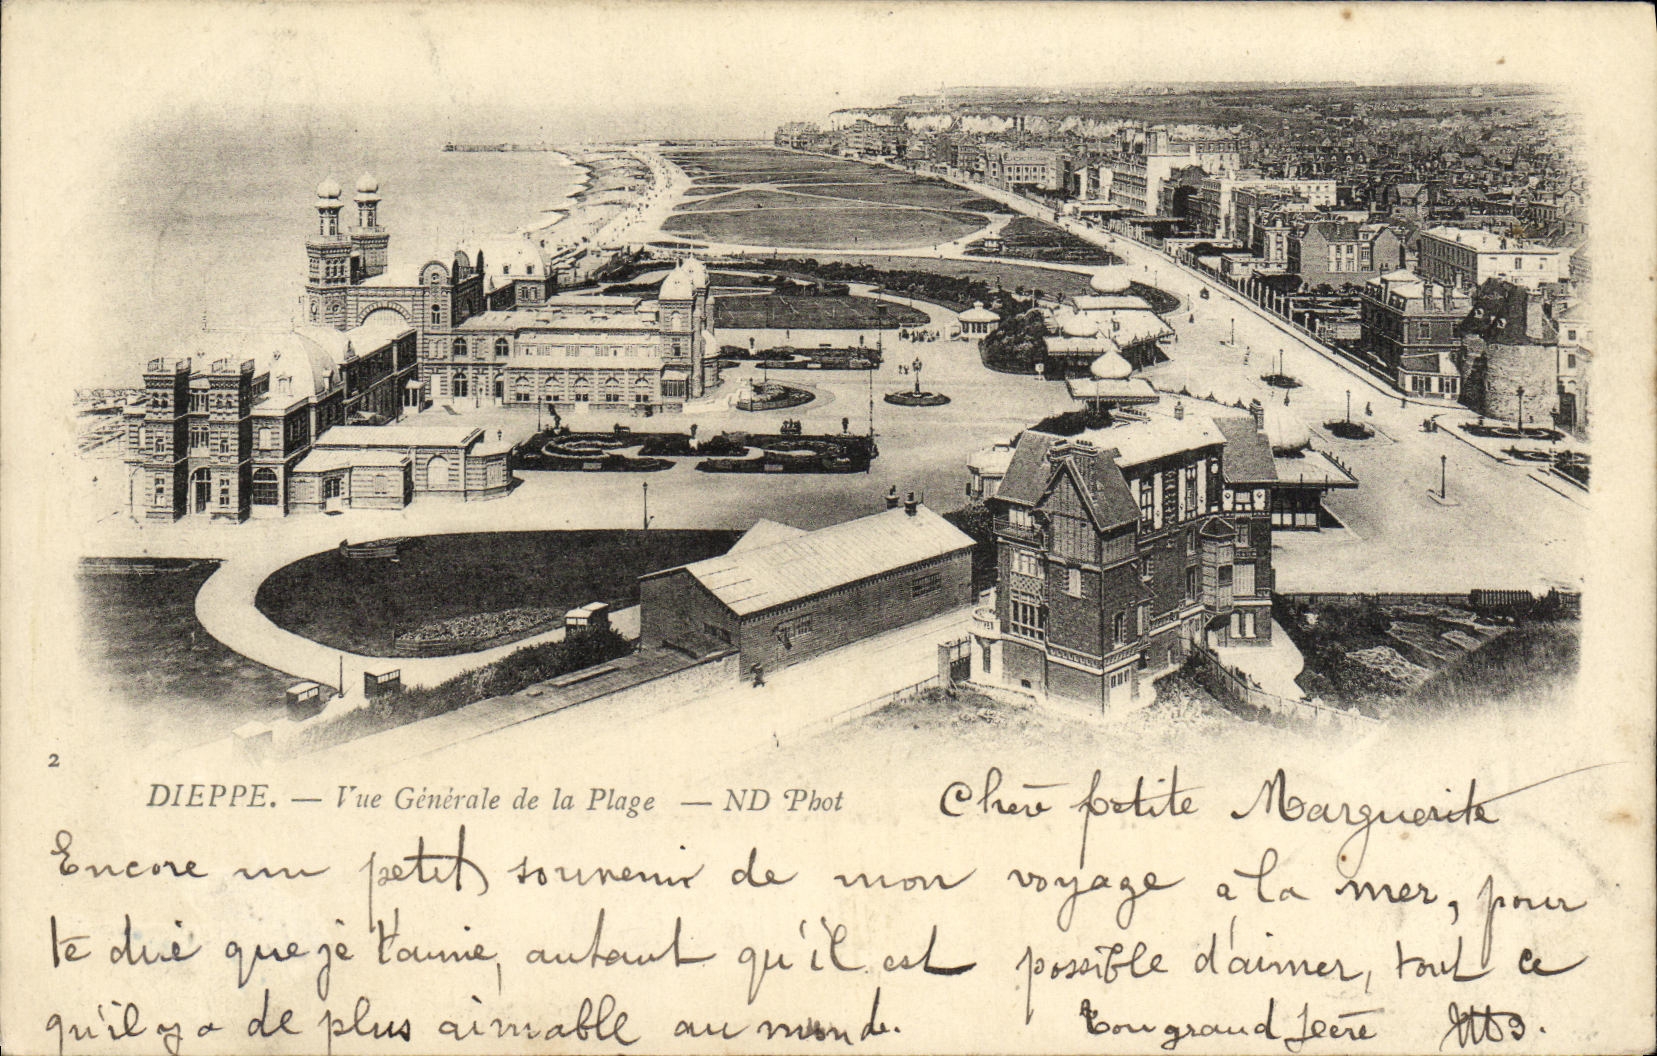 2
DIEPPE. — Vue Générale de la Plage — ND Phot
Chère petite Marguerite
Encore un petit souvenir de mon voyage a la mer, pour
te dire que je t'aime, autant qu'il est possible d'aimer, tout ce
qu'il y a de plus aimable au monde.
Ton grand